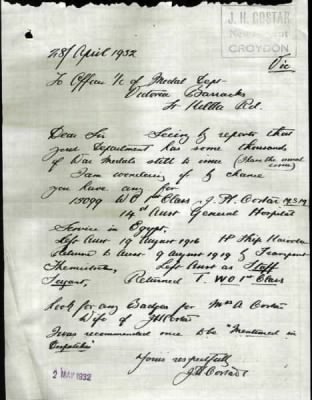 J. H. COSTAR
Newsagent
CROYDON
28/ April 1932
Vic
To Officer I/c of Medal Dept
Victoria Barracks
St Kilda Rd.
Dear Sir Seeing by reports that
your Department has some thousands
of War Medals still to issue
I am wondering if by chance
you have any for
15099 W O 1st Class J. H. Costar M.S.M
14th Aust General Hospital
Service in Egypt,
Left Aust 19 August 1916 H Ship Karoola
Returned to Aust 9 August 1919 by Transport
Themistocles, Left Aust as Staff
Sergant, Returned T. W O 1st Class
Look for any Badges for Mrs A Costar
Wife of J H Costar
I was recommended once to be "Mentioned in
Despatches"
Yours respectfully
J H Costar
2 MAY 1932